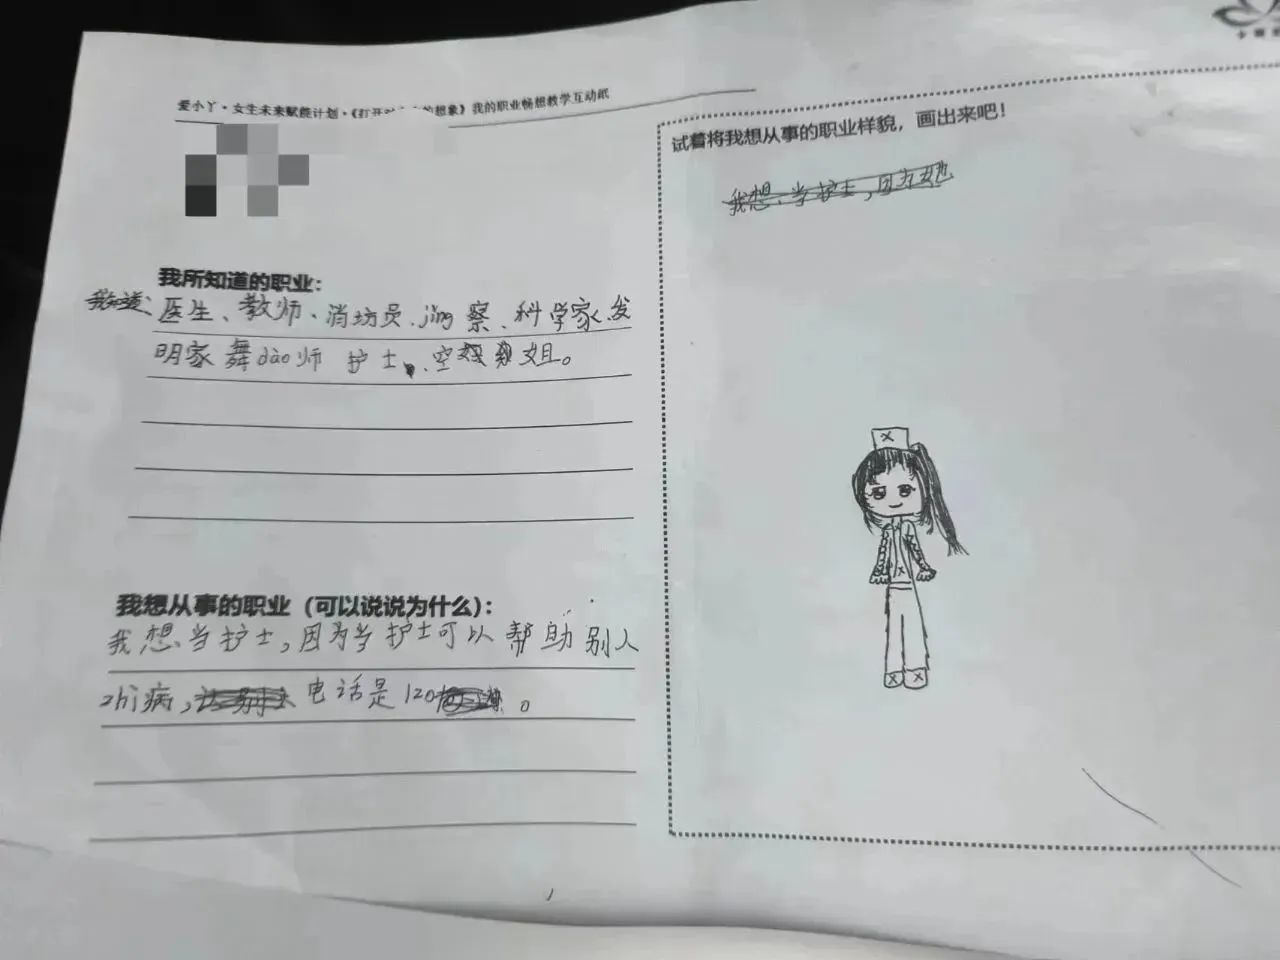 爱小丫·女生未来赋能计划·《打开 的想象》我的职业畅想教学互动纸
我所知道的职业：
我知道：医生、教师、消坊员、jing察、科学家、发
明家 舞dǎo师 护士、空姐。
我想从事的职业（可以说说为什么）：
我想当护士，因为当护士可以帮助别人
zhì病，电话是120。
试着将我想从事的职业样貌，画出来吧！
我想当护士，因为她